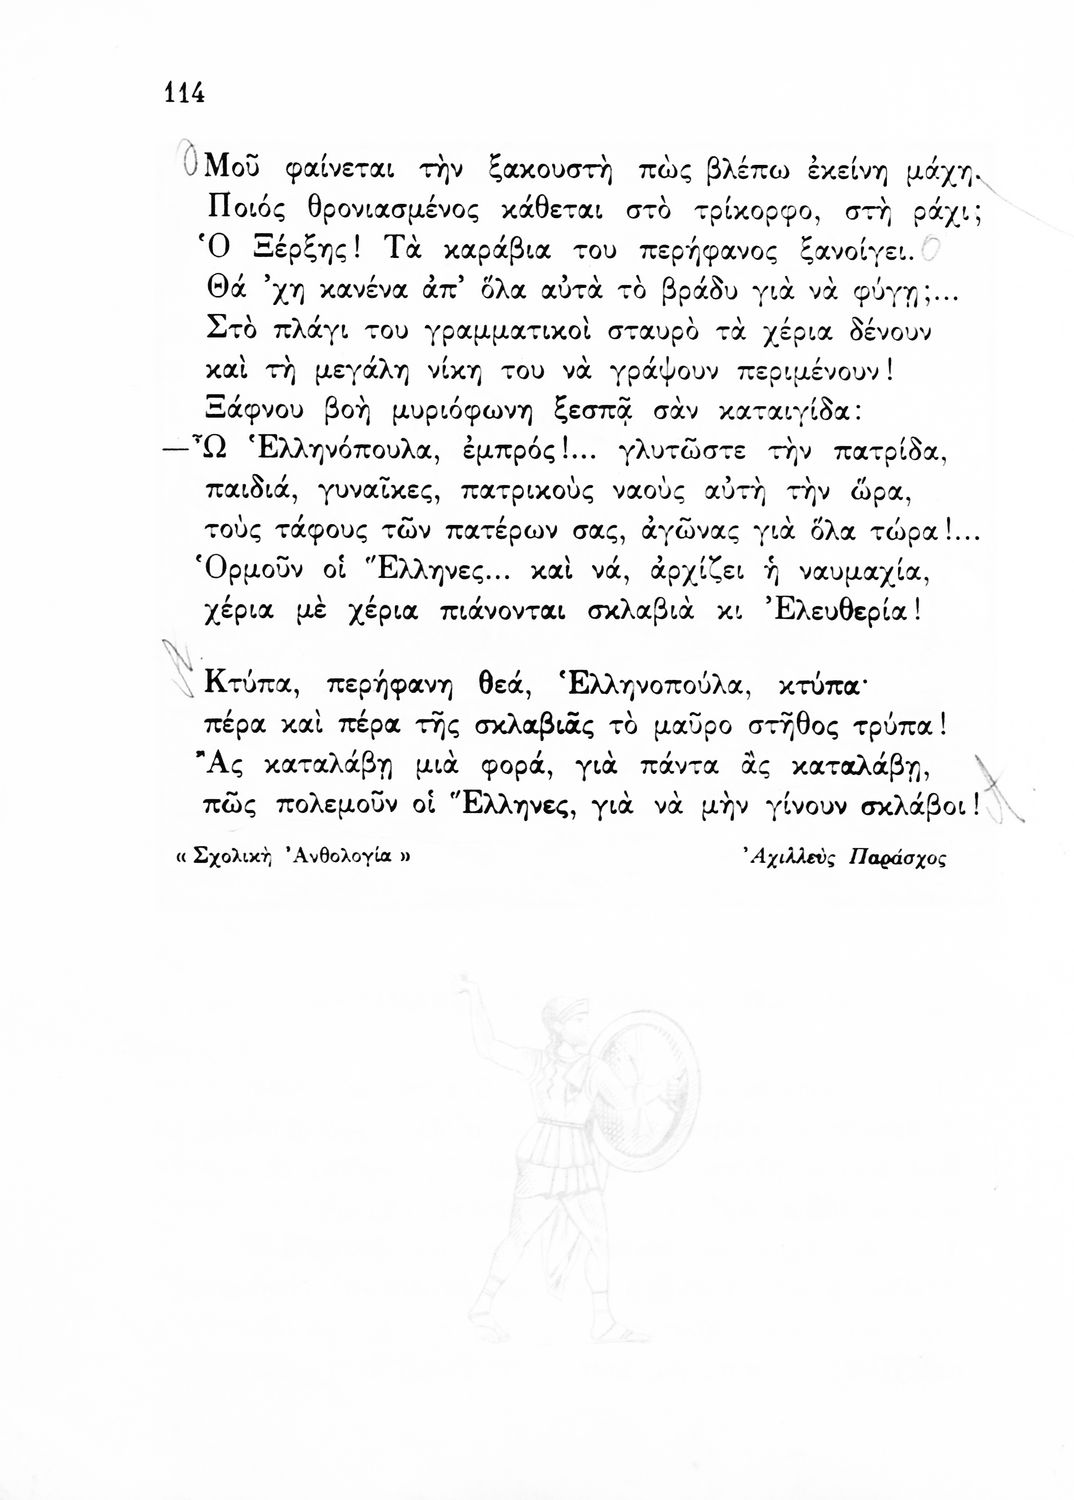 114
Μοῦ φαίνεται τὴν ξακουστὴ πὼς βλέπω ἐκείνη μάχη.
Ποιός θρονιασμένος κάθεται στὸ τρίκορφο, στὴ ράχι;
Ὁ Ξέρξης! Τὰ καράβια του περήφανος ξανοίγει.
Θά ’χη κανένα ἀπ’ ὅλα αὐτὰ τὸ βράδυ γιὰ νὰ φύγῃ;...
Στὸ πλάγι του γραμματικοὶ σταυρὸ τὰ χέρια δένουν
καὶ τὴ μεγάλη νίκη του νὰ γράψουν περιμένουν!
Ξάφνου βοὴ μυριόφωνη ξεσπᾷ σὰν καταιγίδα:
—Ὦ Ἑλληνόπουλα, ἐμπρός!... γλυτῶστε τὴν πατρίδα,
παιδιά, γυναῖκες, πατρικοὺς ναοὺς αὐτὴ τὴν ὥρα,
τοὺς τάφους τῶν πατέρων σας, ἀγῶνας γιὰ ὅλα τώρα!...
Ὁρμοῦν οἱ Ἕλληνες... καὶ νά, ἀρχίζει ἡ ναυμαχία,
χέρια μὲ χέρια πιάνονται σκλαβιὰ κι Ἐλευθερία!
Κτύπα, περήφανη θεά, Ἑλληνοπούλα, κτύπα·
πέρα καὶ πέρα τῆς σκλαβιᾶς τὸ μαῦρο στῆθος τρύπα!
Ἂς καταλάβῃ μιὰ φορά, γιὰ πάντα ἂς καταλάβῃ,
πῶς πολεμοῦν οἱ Ἕλληνες, γιὰ νὰ μὴν γίνουν σκλάβοι!
« Σχολικὴ Ἀνθολογία » Ἀχιλλεὺς Παράσχος